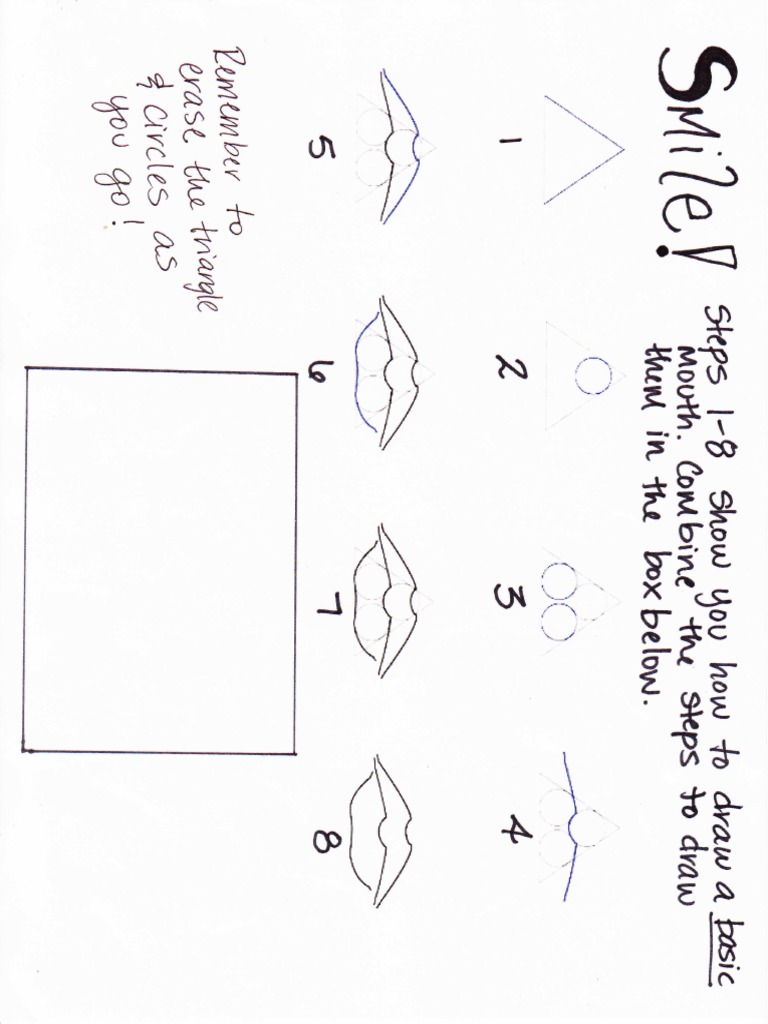 Smile!
Steps 1-8 show you how to draw a basic
mouth. Combine the steps to draw
them in the box below.
1
2
3
4
5
6
7
8
Remember to
erase the triangle
& circles as
you go!